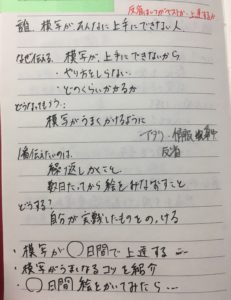 誰. 模写が、あんなに上手にできない人
なぜ伝える. 模写が、上手にできないから
・やり方をしらない
・どのくらいかかるか
どうなってもらう:
模写がうまくかけるように
反省
1番伝えたいのは.
繰返しかくこと
数日たってから絵をみなおすこと
どうする?
自分が実戦したものをのっける
・模写が〇日間で上達する…
・模写がうまくなるコツを紹介
・〇日間絵をかいてみたら…